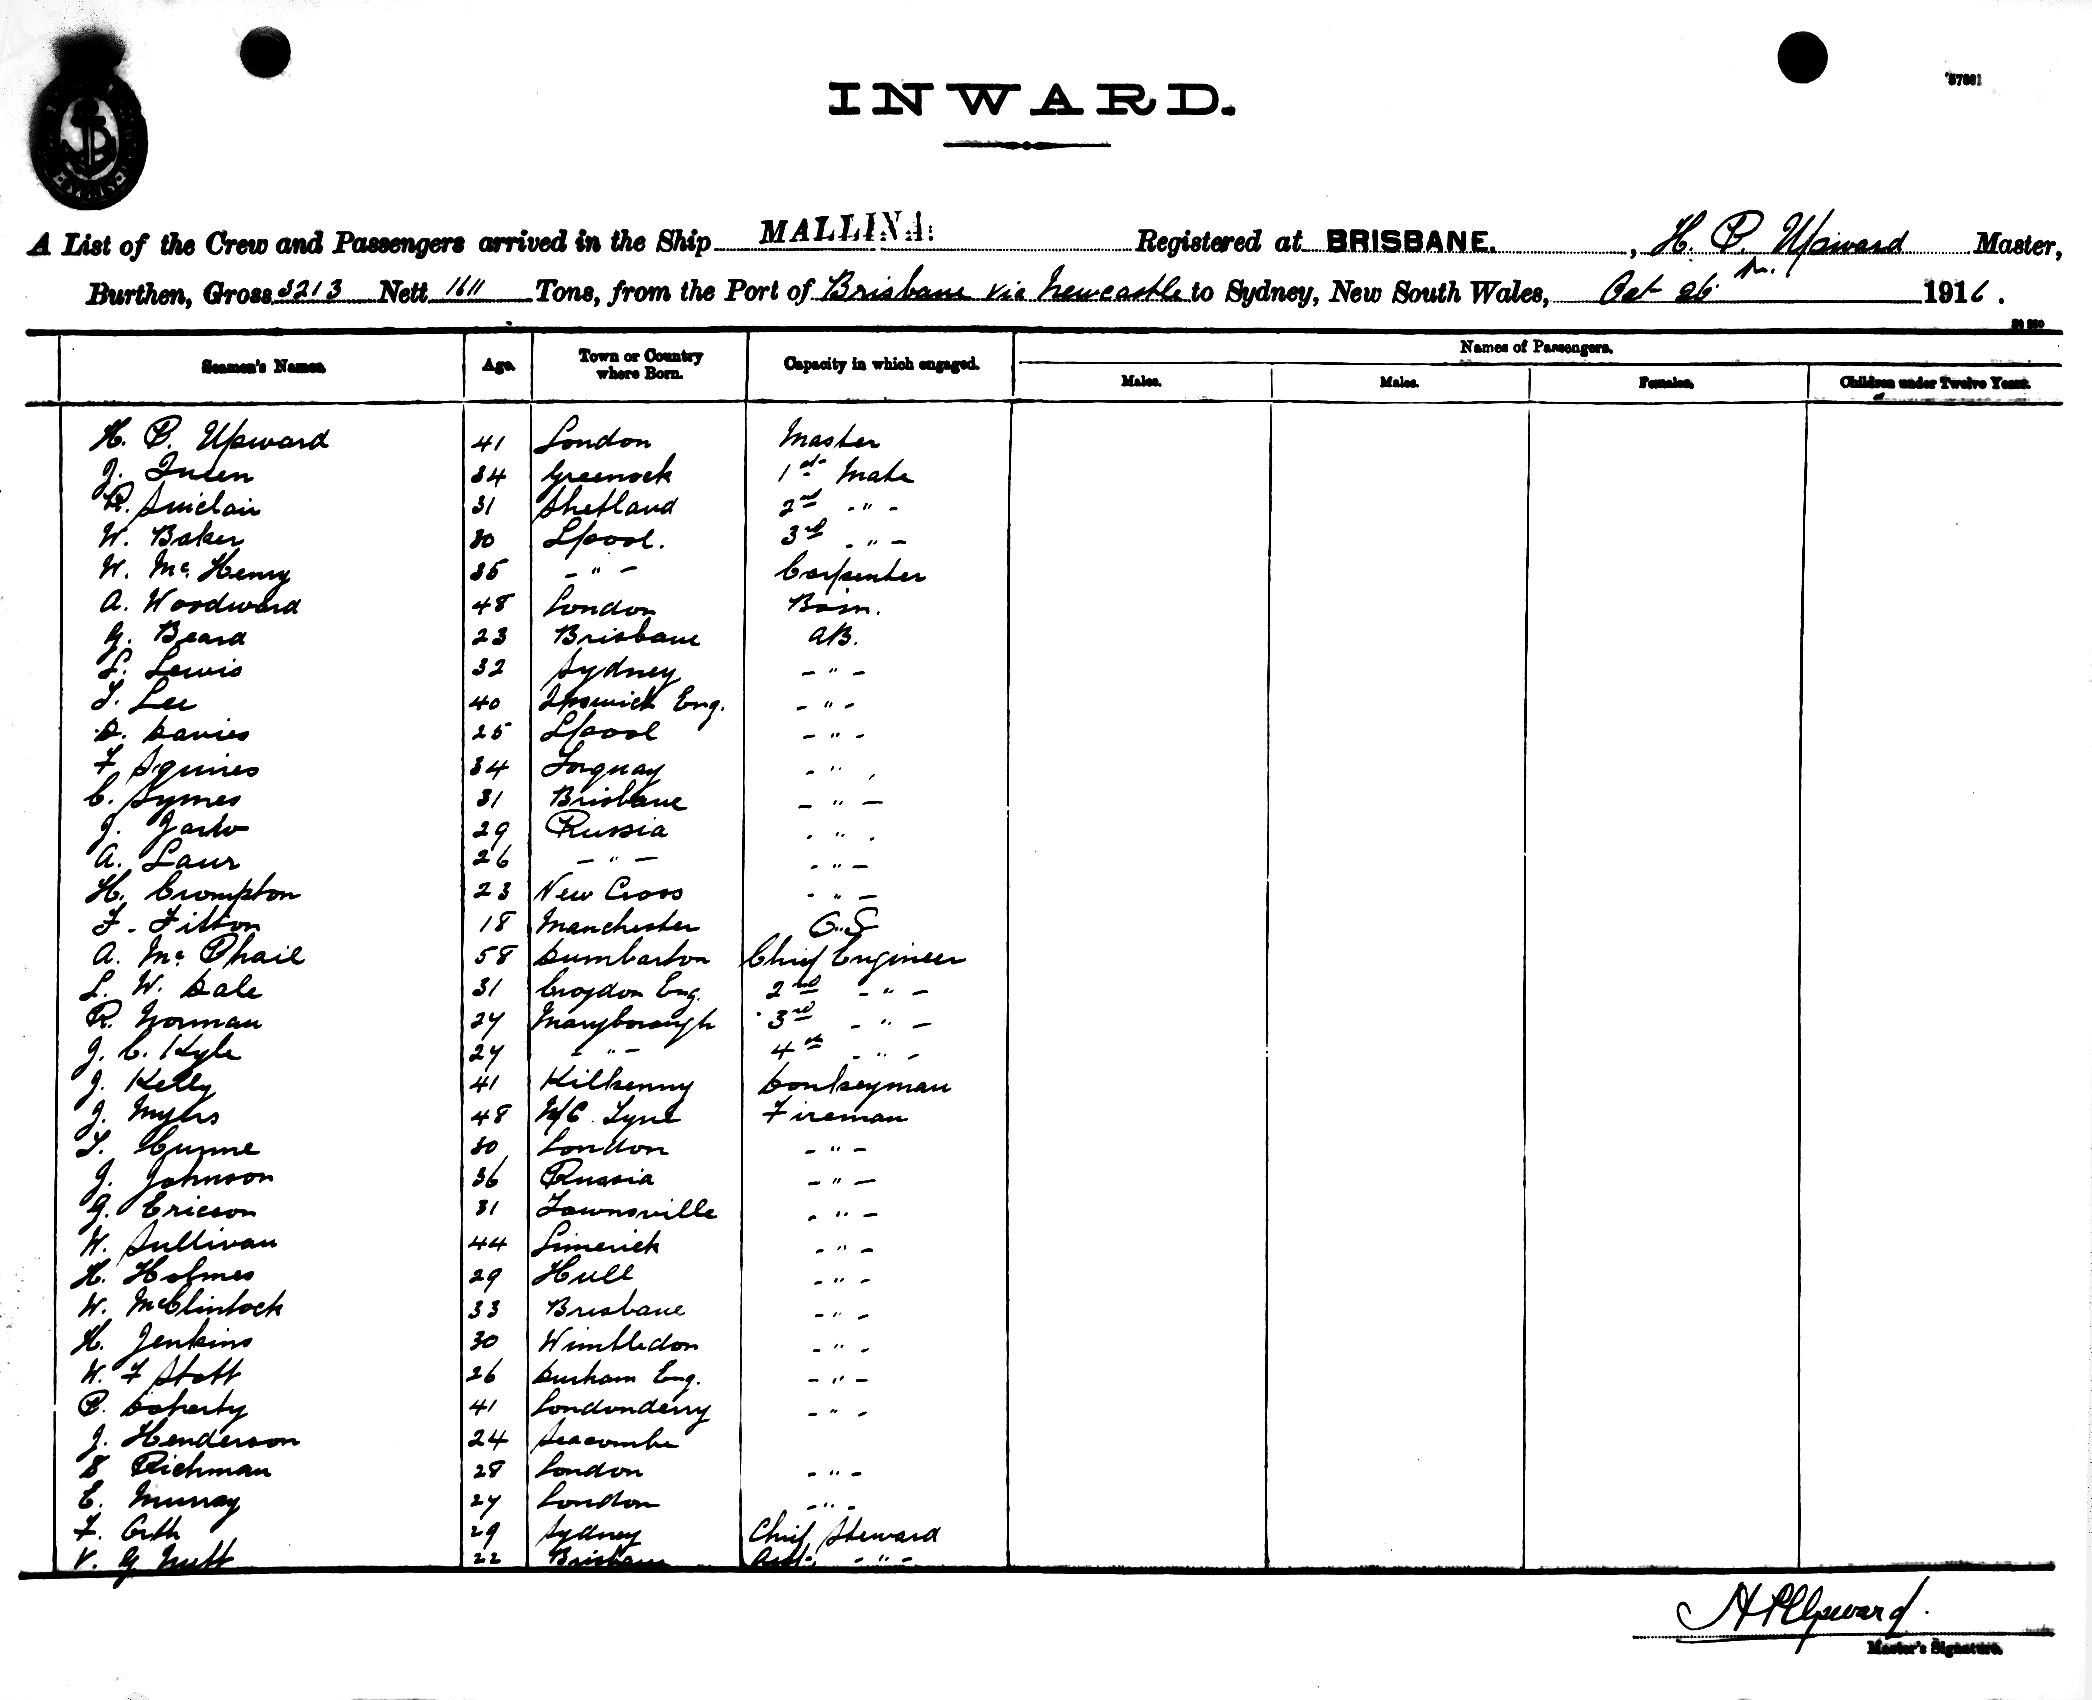 '57881
INWARD.
A List of the Crew and Passengers arrived in the Ship MALLINA. Registered at BRISBANE. , H. P. Upward Master,
Burthen, Gross 3213 Nett 1611 Tons, from the Port of Brisbane via Newcastle to Sydney, New South Wales, Oct 26th 1916.
Seamen's Names Age. Town or Country where Born. Capacity in which engaged. Names of Passengers.
Males. Males. Females. Children under Twelve Years.
H. P. Upward 41 London Master
J. Queen 34 Greenock 1st Mate
R. Sinclair 31 Shetland 2nd - " -
W. Baker 30 L/pool. 3rd - " -
W. Mc Henry 35 - " - Carpenter
A. Woodward 48 London Bosn.
G. Beard 23 Brisbane AB.
L. Lewis 32 Sydney - " -
T. Lee 40 Ipswich Eng. - " -
D. Davies 25 L/pool - " -
F Squires 34 Torquay - " -
C. Symes 31 Brisbane - " -
J. 29 Russia - " -
A. Laur 26 - " - - " -
H. Crompton 23 New Cross - " -
F. Fitton 18 Manchester O.S
A. Mc Phail 58 Dumbarton Chief Engineer
L. W. Dale 31 Croydon Eng. 2nd - " -
R. Norman 27 Maryborough 3rd - " -
J. C. Kyle 27 - " - 4th - " -
J. Kelly 41 Kilkenny Donkeyman
J. Myers 48 N/C. Tyne Fireman
T. Cunne 30 London - " -
J. Johnson 36 Russia - " -
G. Ericson 31 Townsville - " -
W. Sullivan 44 Limerick - " -
H. Holmes 29 Hull - " -
W. McClintock 33 Brisbane - " -
H. Jenkins 30 Wimbledon - " -
W. F Stott 26 Durham Eng. - " -
P. Doherty 41 Londonderry - " -
J. Henderson 24 Seacombe
S Richman 28 London - " -
E. Murray 27 London - " -
F. Orth 29 Sydney Chief Steward
V. G Nutt 22 Brisbane Asst. - " -
H P Upward.
Master's Signature.